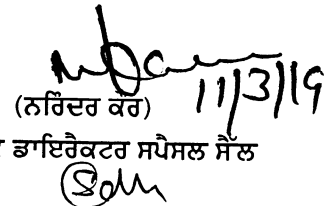 11/3/19
(ਨਰਿੰਦਰ ਕੌਰ)
ਡਾਇਰੈਕਟਰ ਸਪੈਸਲ ਸੈੱਲ